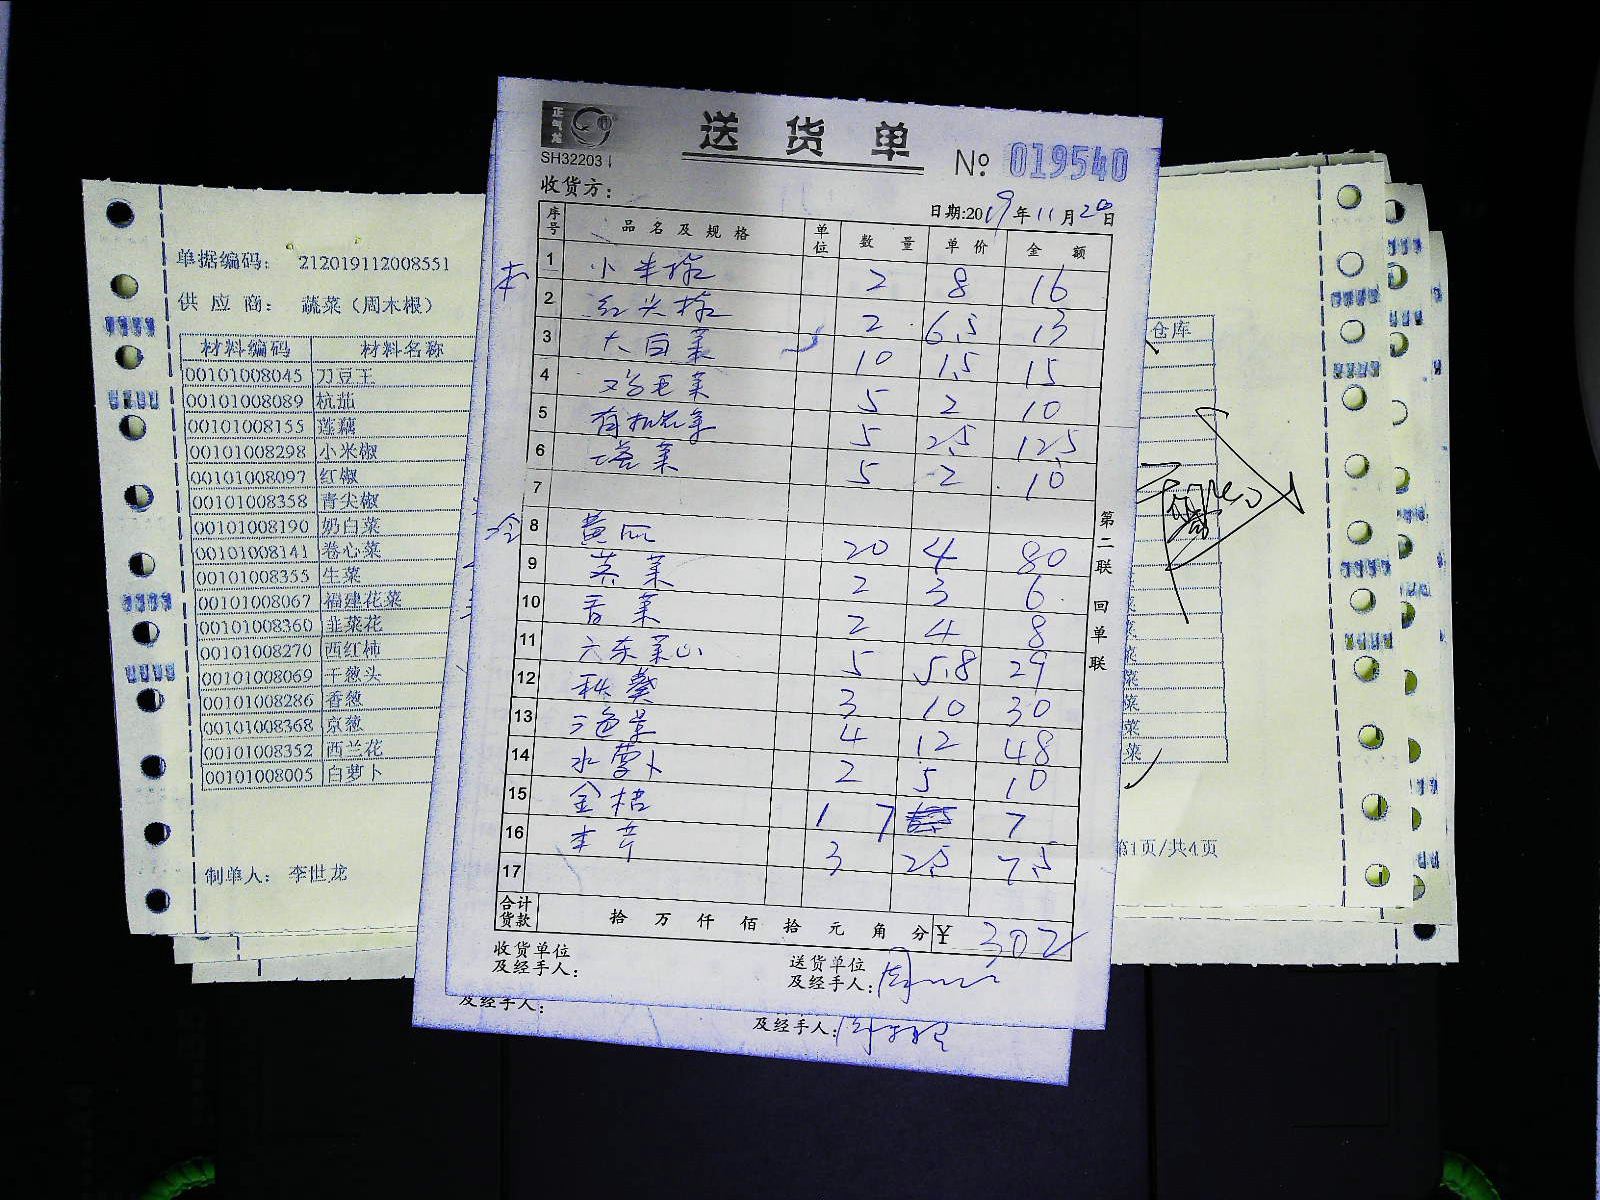 正气龙
SH32203
送货单
№ 019540
收货方：
日期:2019年11月20日
序号 品名及规格 单位 数量 单价 金额
本
1 小米椒 2 8 16
2 红尖椒 2 6.5 13
3 大白菜 10 1.5 15
4 鸡毛菜 5 2 10
5 有机花菜 5 2.5 12.5
6 塔菜 5 2 10
7
冷
8 黄瓜 20 4 80
9 菜 2 3 6
10 香菜 2 4 8
11 菜心 5 5.8 29
12 秋葵 3 10 30
13 三色堇 4 12 48
14 水萝卜 2 5 10
15 金桔 1 7 7
16 3 2.5 7.5
17
合计货款 拾 万 仟 佰 拾 元 角 分 ¥ 302
收货单位
及经手人：
送货单位
及经手人：周
第二联 回单联
及经手人：
及经手人：周
单据编码： 212019112008551
供应商： 蔬菜（周木根）
材料编码 材料名称
00101008045 刀豆王
00101008089 杭茄
00101008155 莲藕
00101008298 小米椒
00101008097 红椒
00101008358 青尖椒
00101008190 奶白菜
00101008141 卷心菜
00101008355 生菜
00101008067 福建花菜
00101008360 韭菜花
00101008270 西红柿
00101008069 干葱头
00101008286 香葱
00101008368 京葱
00101008352 西兰花
00101008005 白萝卜
制单人： 李世龙
仓库
菜
菜
菜
菜
第1页/共4页